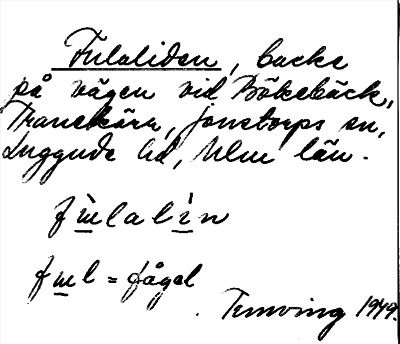 Fulaliden, backe
på vägen vid Bökebäck,
Tranekärr, Jonstorps sn,
Luggude hd, Mlm län.
fɯ̀lalìn
fɯl = fågel
1949.